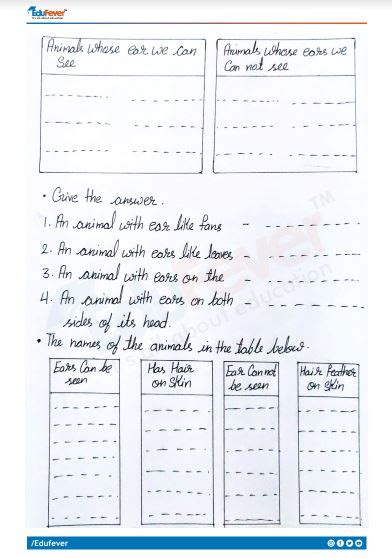 EduFever
Animals whose ear we can
See
Animals whose ears we
Can not see
• Give the answer.
1. An animal with ear like fans -
2. An animal with ears like leaves -
3. An animal with ears on the -
4. An animal with ears on both -
sides of its head.
• The names of the animals in the table below.
Ears Can be
seen
Has Hair
on Skin
Ear Cannot
be seen
Hair Feather
on Skin
/Edufever